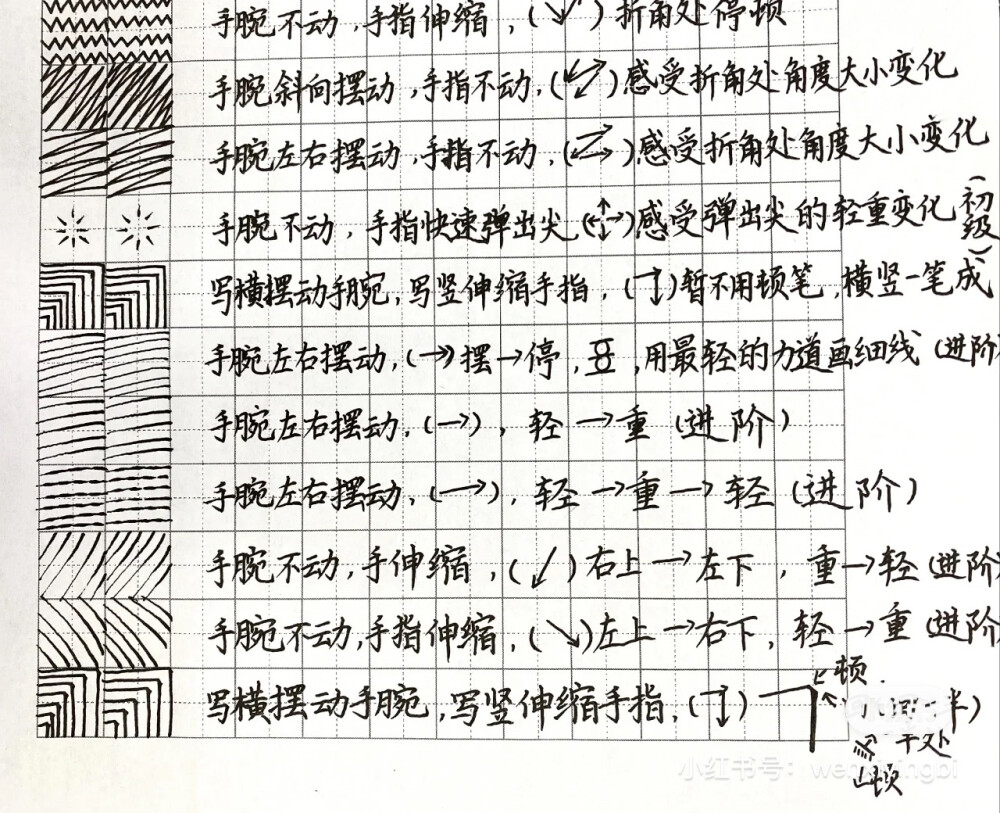 手腕不动,手指伸缩,(↘↙)折角处停顿
手腕斜向摆动,手指不动,(↙↗)感受折角处角度大小变化
手腕左右摆动,手指不动,(⇄)感受折角处角度大小变化
手腕不动,手指快速弹出尖,(←↑→↓)感受弹出尖的轻重变化(初级)
写横摆动手腕,写竖伸缩手指,(→↓)暂不用顿笔,横竖一笔成
手腕左右摆动,(→)摆→停,,用最轻的力道画细线(进阶)
手腕左右摆动,(→),轻→重(进阶)
手腕左右摆动,(→),轻→重→轻(进阶)
手腕不动,手伸缩,(↙)右上→左下,重→轻(进阶)
手腕不动,手指伸缩,(↘)左上→右下,轻→重(进阶)
写横摆动手腕,写竖伸缩手指,(→↓)
顿.
半)
处
顿
小红书号: